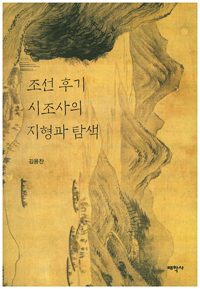 조선 후기
시조사의
지형과 탐색
김용찬
태학사